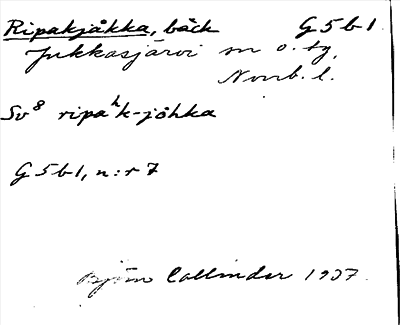 Ripakjåkka, bäck G5b1
Jukkasjärvi sn o. tg,
Norrb. l.
Sv⁸ ripaʰk-jåhka
G5b1, n:r 7
Björn Collinder 1937.